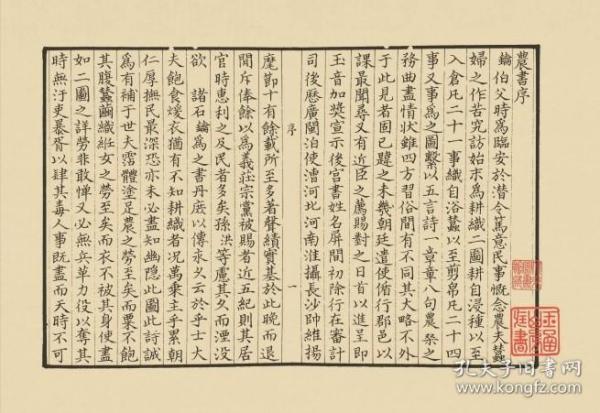 農書序
鑰伯父時為臨安於潛令篤意民事慨念農夫蠶
婦之作苦究訪始末為耕織二圖耕自浸種以至
入倉凡二十一事織自浴蠶以至剪帛凡二十四
事又事為之圖繫以五言詩一章章八句農桑之
務曲盡情狀雖四方習俗間有不同其大略不外
于此見者固已韙之未幾朝廷遣使循行郡邑以
課最聞尋又有近臣之薦賜對之日首以進呈即
玉音加奬宣示後宮書姓名屏間初除行在審計
司後歷廣閩泊使漕河北河南淮攝長沙帥維揚
序
一
麾節十有餘載所至多著聲績實基於此晚而退
閑斥俸餘以為義莊宗黨被賜者近五紀則其居
官時惠利之及民者多矣孫洪等慮其久而湮没
欲諸石鑰為之書丹庶以傳永久云於乎士大
夫飽食煖衣猶有不知耕織者况萬乗主乎累朝
仁厚撫民最深恐亦未必盡知幽隱此圖此詩誠
為有補于世夫霑體塗足農之勞至矣而粟不飽
其腹蠶繭織紝女之勞至矣而衣不被其身使盡
如二圖之詳勞非敢憚又必無兵革力役以奪其
時無汙吏暴胥以肆其毒人事既盡而天時不可
孔夫子旧书网
www.kongfz.com